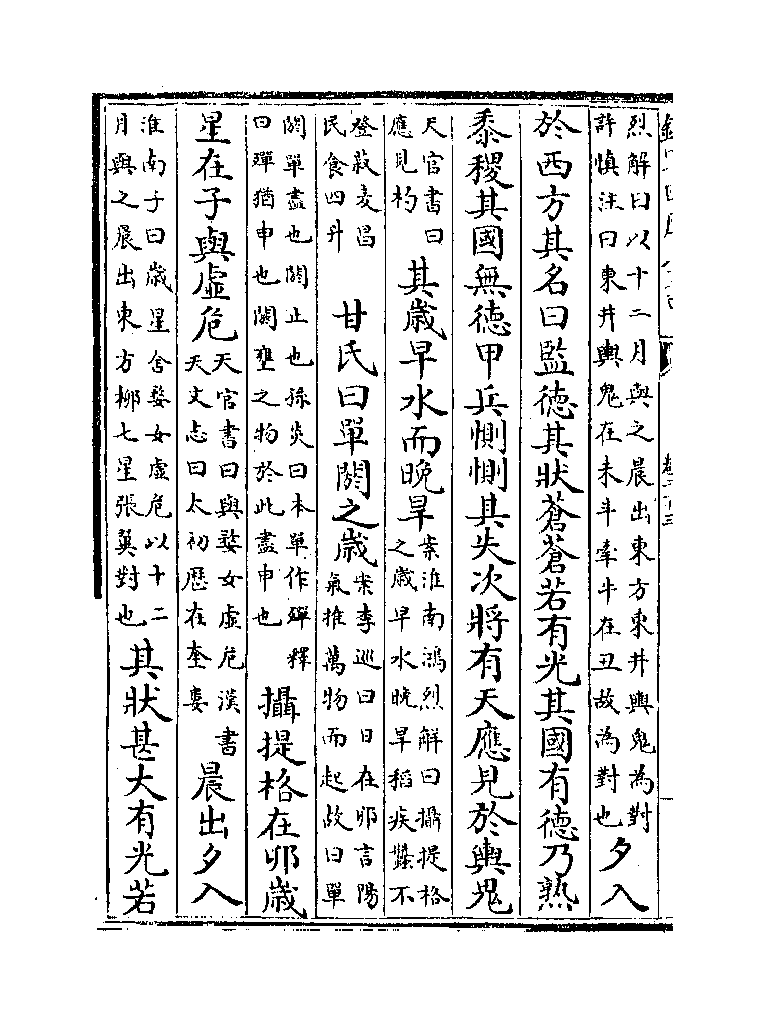 烈解曰以十二月與之晨出東方東井輿鬼為對
許慎注曰東井輿鬼在未斗牽牛在丑故為對也夕入
於西方其名曰監徳其狀蒼蒼若有光其國有徳乃熟
黍稷其國無徳甲兵惻惻其失次將有天應見於輿鬼
天官書曰
應見杓其歲早水而晚旱案淮南鴻烈解曰攝提格
之歲早水晚旱稻疾蠶不
登菽麦昌
民食四升甘氏曰單閼之歲案李廵曰日在卯言陽
氣推萬物而起故曰單
閼單盡也閼止也孫炎曰本單作殫釋
曰殫猶申也閼壅之物於此盡申也攝提格在卯歲
星在子與虛危天官書曰與婺女虛危漢書
天文志曰太初厯在奎婁晨出夕入
淮南子曰歲星舍婺女虛危以十二
月與之晨出東方柳七星張翼對也其狀甚大有光若